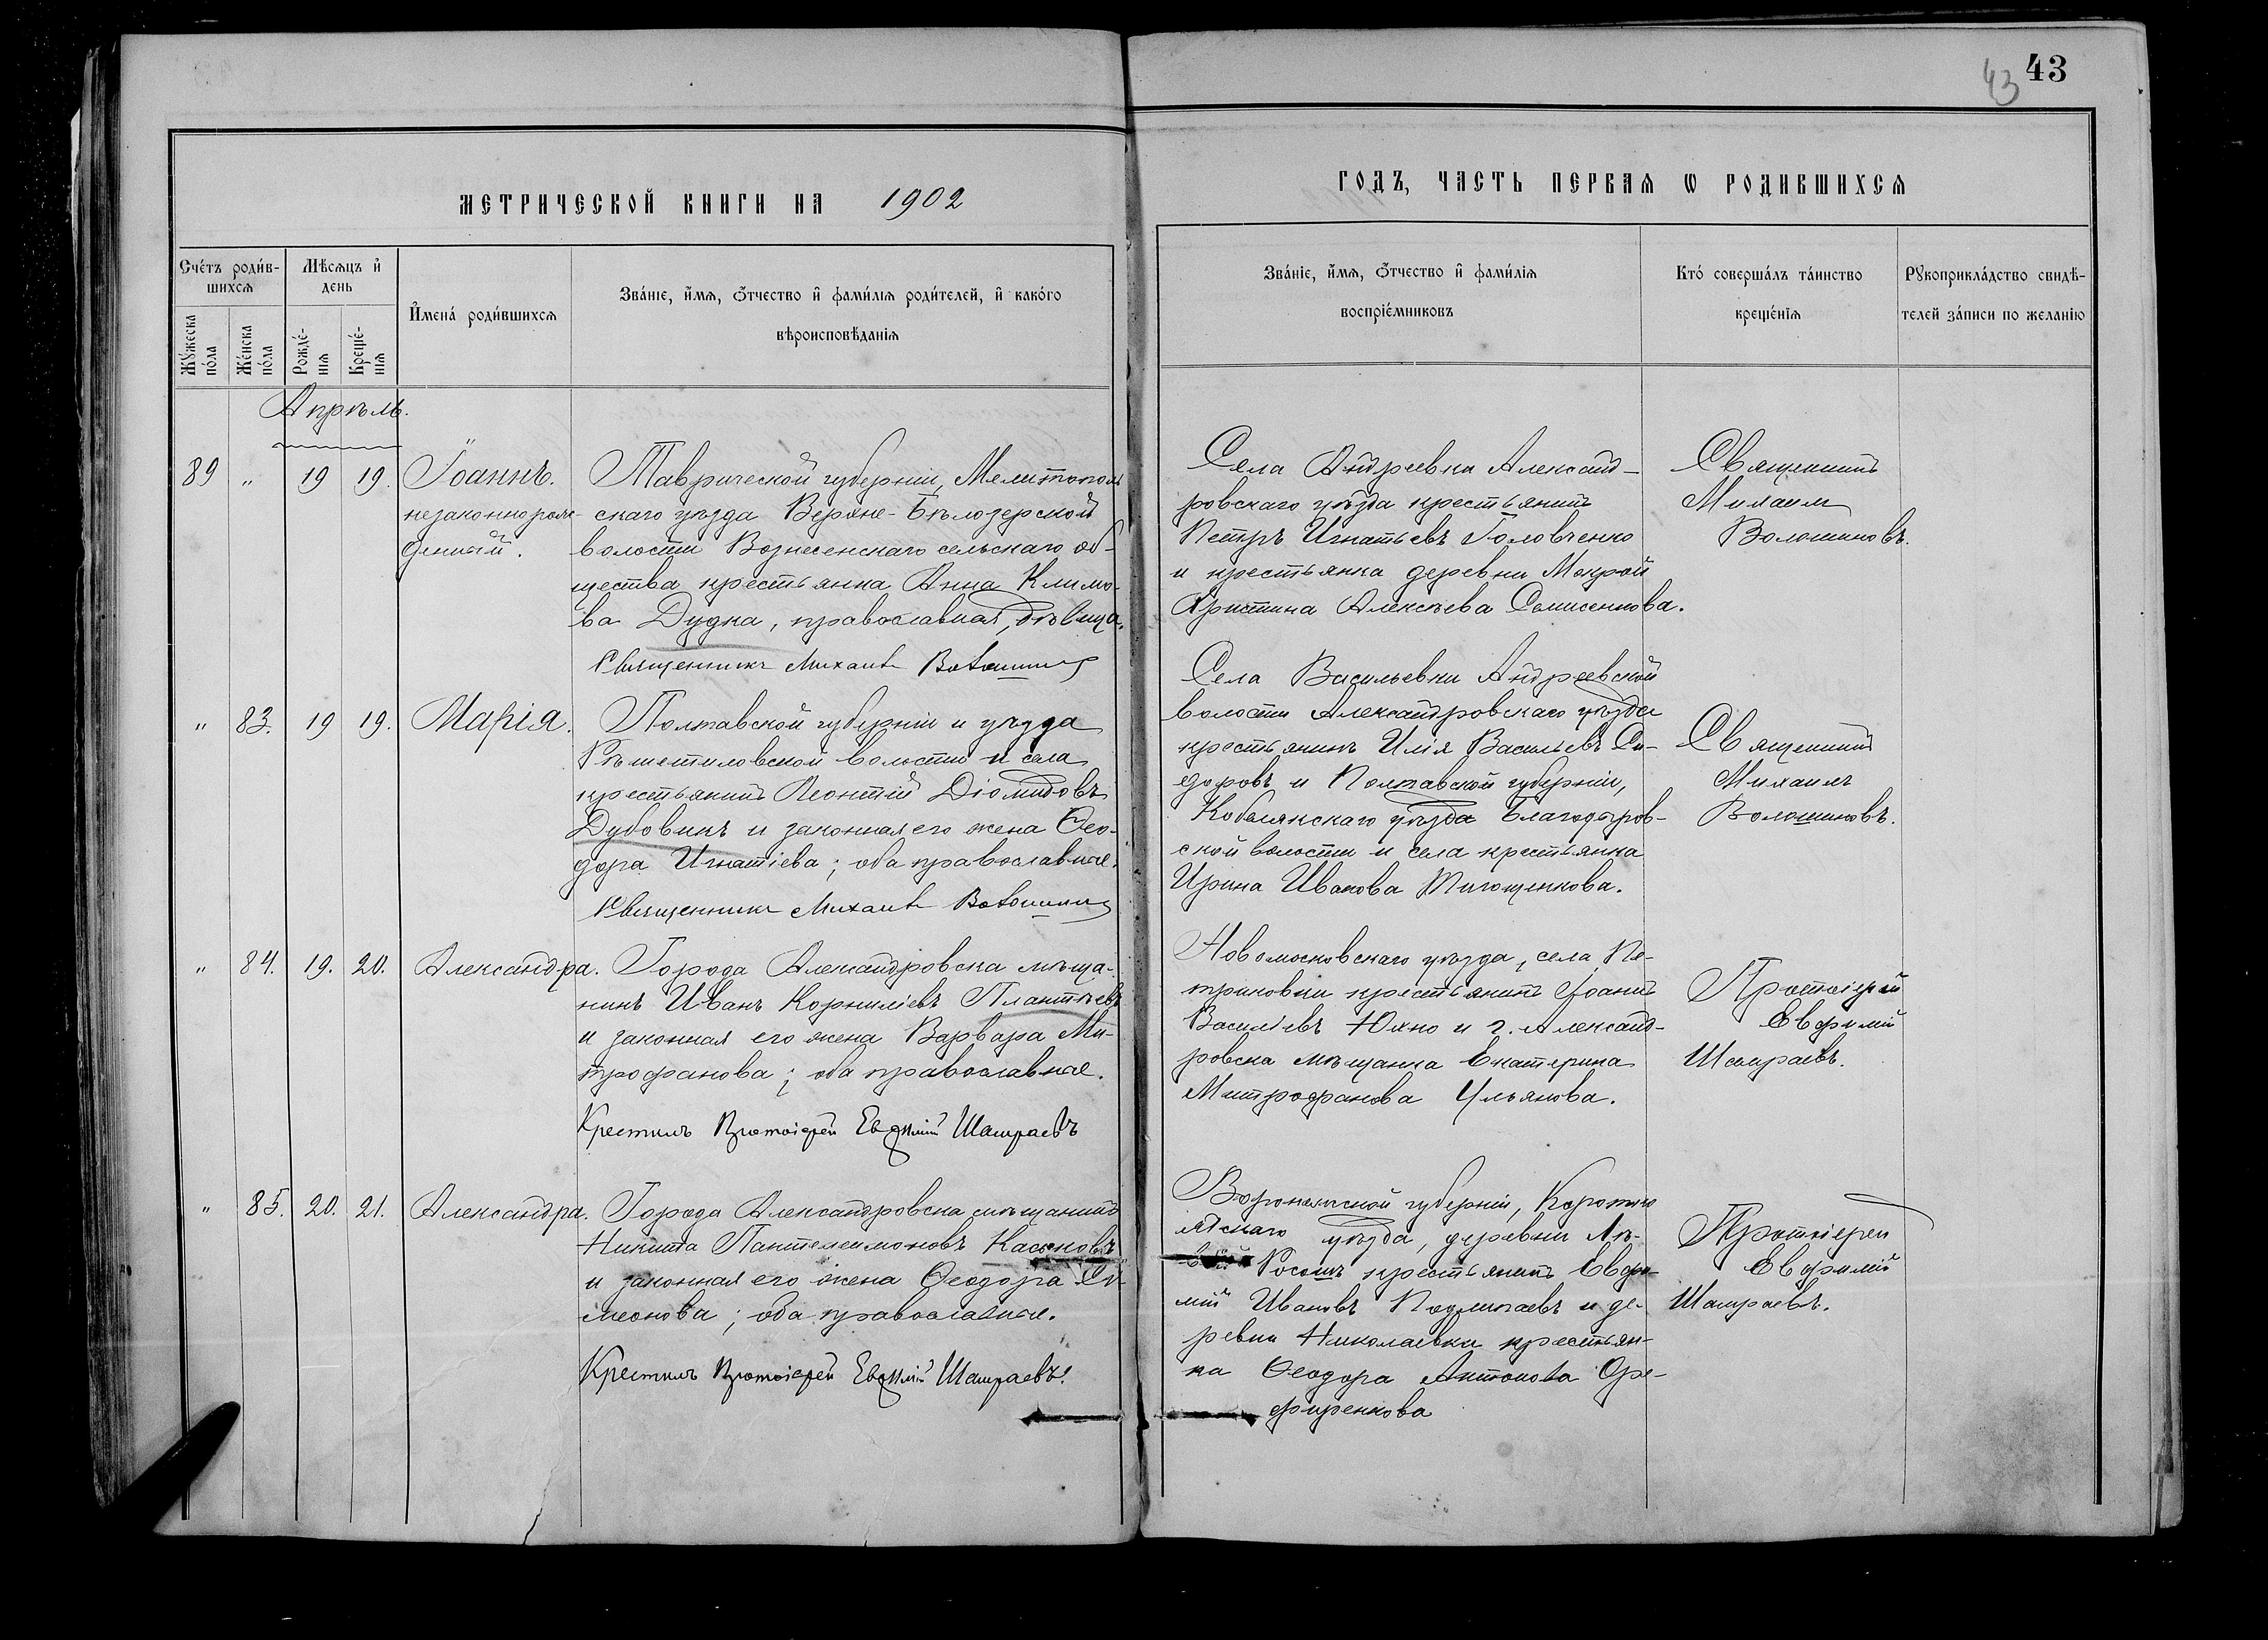 43
43
МЕТРИЧЕСКОЙ КНИГИ НА 1902
ГОДЪ, ЧАСТЬ ПЕРВАѦ Ѡ РОДИВШИХСѦ
Сче́тъ роди́в-
шихсѧ
Мѣ́сѧцъ и҆
день
И҆мена̀ роди́вшихсѧ
Зва́нїе, и҆́мѧ, ѻ҆́тчество и҆ фами́лїѧ роди́телей, и҆ како́го
вѣроисповѣ́данїѧ
Мꙋ́жеска
по́ла
Же́нска
по́ла
Рожде́-
нїѧ
Креще́-
нїѧ
Зва́нїе, и҆́мѧ, ѻ҆́тчество и҆ фами́лїѧ
воспрїе́мниковъ
Кто̀ соверша́лъ та́инство
креще́нїѧ
Рꙋкоприкла́дство свидѣ́-
телей за́писи по жела́нїю
Апрѣль.
89 " 19 19. Іоаннъ.
незаконнорож-
денный.
Таврической губерніи, Мелитополь
скаго уѣзда Верхне-Бѣлозерской
волости Вознесенскаго сельскаго об-
щества крестьянка Анна Климо-
ва Дудка, православная, дѣвица.
Священникъ Михаилъ Волошинъ
Села Андреевки Александ-
ровскаго уѣзда крестьянинъ
Петръ Игнатьевъ Головченко
и крестьянка деревни Мокрой
Христина Алексѣева
Священникъ
Михаилъ
Волошиновъ.
" 83. 19 19. Марія.
Полтавской губерніи и уѣзда
Рѣшетиловской волости и села
крестьянинъ Леонтій Діомидовъ
Дубовикъ и законная его жена Ѳео-
дора Игнатіева; оба православные.
Священникъ Михаилъ Волошинъ
Села Васильевки Андреевской
волости Александровскаго уѣзда
крестьянинъ Илія Васильевъ Си-
доровъ и Полтавской губерніи,
Кобелякскаго уѣзда Благодаров-
ской волости и села крестьянка
Ирина Иванова
Священникъ
Михаилъ
Волошиновъ.
" 84. 19. 20. Александра.
Города Александровска мѣща-
нинъ Иванъ Корниліевъ Плантѣевъ
и законная его жена Варвара Ми-
трофанова; оба православные.
Крестилъ Протоіерей Евфимій Шамраевъ
Новомосковскаго уѣзда, села Пе-
триковки крестьянинъ Іоаннъ
Василіевъ Юхно и г. Александ-
ровска мѣщанка Екатерина
Митрофанова Ульянова.
Протоіерей
Евфимій
Шамраевъ.
" 85. 20. 21. Александра.
Города Александровска мѣщанинъ
Никита Пантелеимоновъ Касьновъ
и законная его жена Ѳеодора Си-
меонова; оба православные.
Крестилъ Протоіерей Евфимій Шамраевъ.
Воронежской губерніи, Коротко
якскаго уѣзда, деревни Лѣ-
вой Россошъ крестьянинъ Евфи-
мій Ивановъ и де-
ревни Николаевки крестьян-
ка Ѳеодора Антонова Оре-
фиренкова
Протоіерей
Евфимій
Шамраевъ.